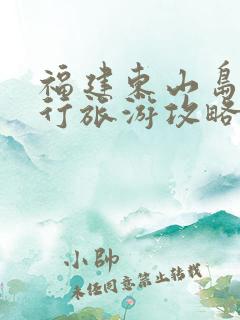 福建东山岛
行旅游攻略
小帅
未经同意禁止转载